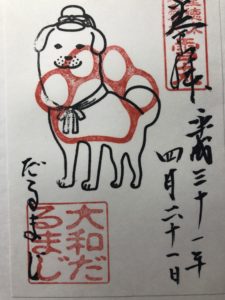 奉拝
平成三十一年
四月二十一日
だるまじ
大和だ
るまじ